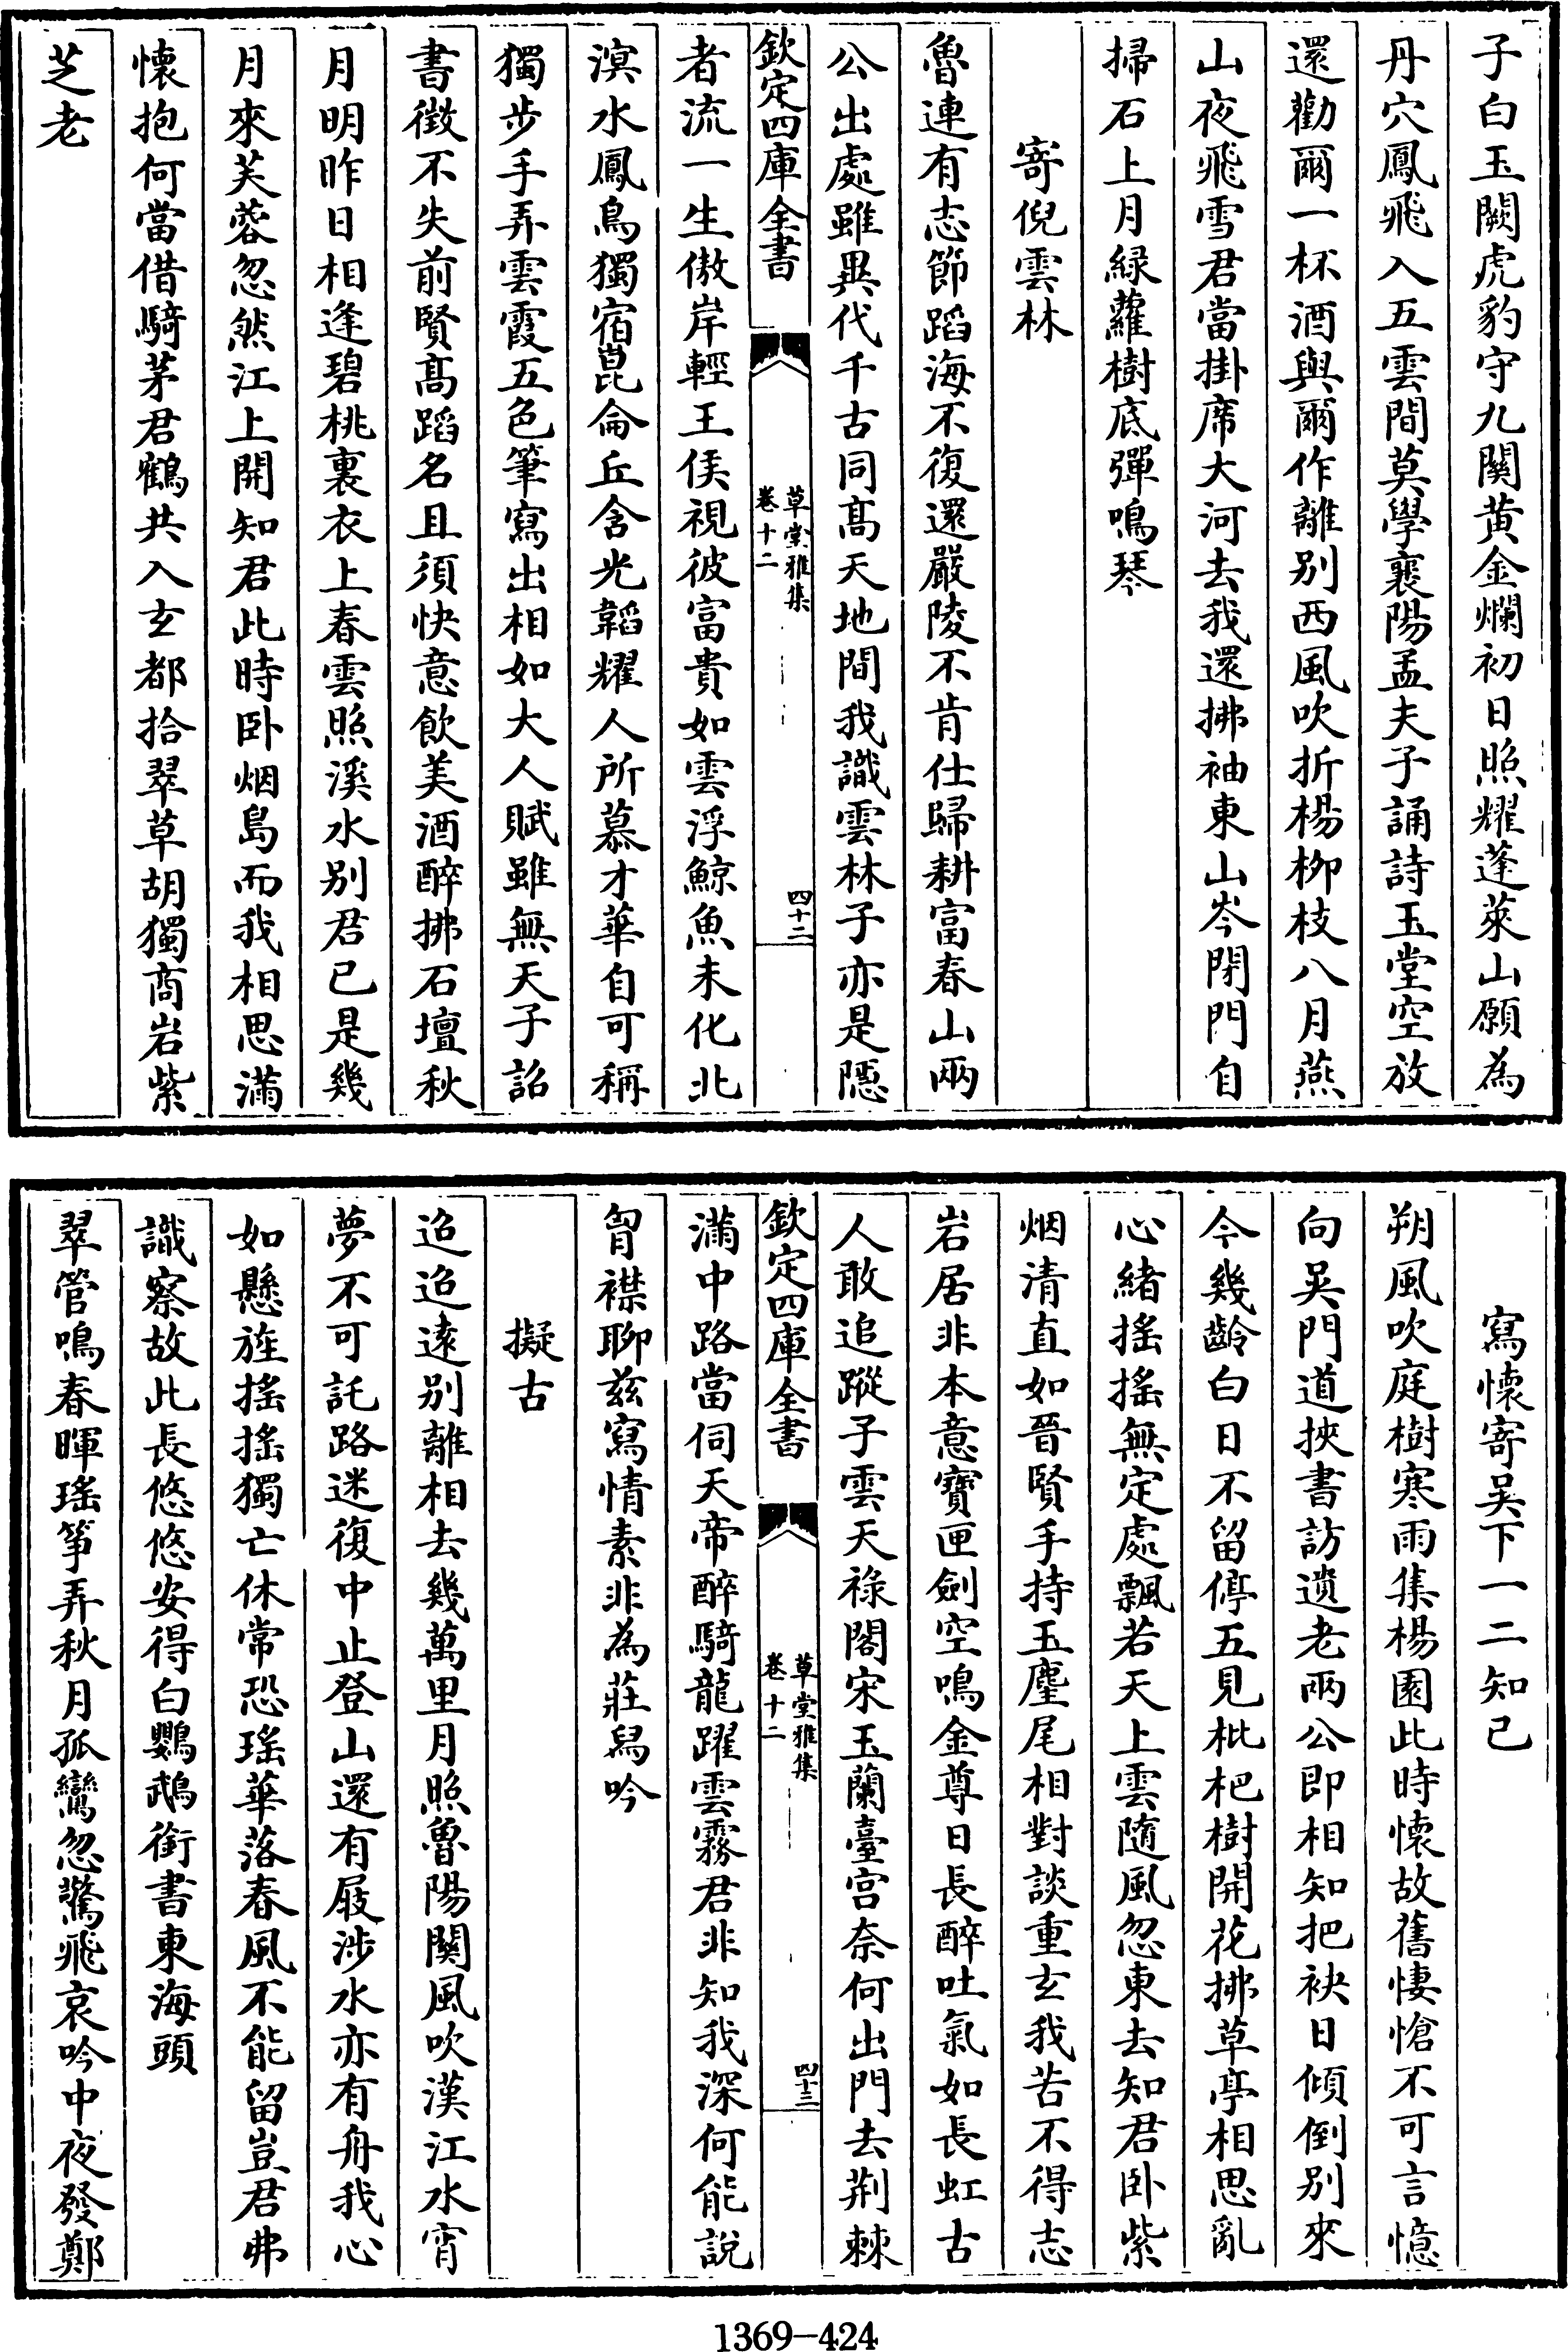 子白玉闕虎豹守九關黄金爛初日照耀蓬萊山願為
丹穴鳳飛入五雲間莫學襄陽孟夫子誦詩玉堂空放
還勸爾一杯酒與爾作離别西風吹折楊柳枝八月燕
山夜飛雪君當掛席大河去我還拂袖東山岑閉門自
掃石上月緑蘿樹底彈鳴琴
寄倪雲林
魯連有志節蹈海不復還嚴陵不肯仕歸耕富春山兩
公出處雖異代千古同髙天地間我識雲林子亦是隱
欽定四庫全書
草堂雅集
卷十二
四十二
者流一生傲岸輕王侯視彼富貴如雲浮鯨魚未化北
溟水鳳鳥獨宿崑侖丘含光韜耀人所慕才華自可稱
獨步手弄雲霞五色筆寫出相如大人賦雖無天子詔
書徴不失前賢髙蹈名且須快意飲美酒醉拂石壇秋
月明昨日相逢碧桃裏衣上春雲照溪水别君已是幾
月來芙蓉忽然江上開知君此時卧烟島而我相思滿
懐抱何當借騎茅君鶴共入玄都拾翠草胡獨商岩紫
芝老
寫懐寄吴下一二知己
朔風吹庭樹寒雨集楊園此時懐故舊悽愴不可言憶
向吴門道挾書訪遺老兩公即相知把袂日傾倒别來
今幾齡白日不留停五見枇杷樹開花拂草亭相思亂
心緒揺揺無定處飄若天上雲随風忽東去知君卧紫
烟清直如晉賢手持玉麈尾相對談重玄我苦不得志
岩居非本意寳匣劍空鳴金尊日長醉吐氣如長虹古
人敢追蹤子雲天禄閣宋玉蘭臺宫奈何出門去荆棘
欽定四庫全書
草堂雅集
卷十二
四十三
滿中路當伺天帝醉騎龍躍雲霧君非知我深何能說
胷襟聊兹寫情素非為莊舄吟
擬古
迢迢逺别離相去幾萬里月照魯陽關風吹漢江水宵
夢不可託路迷復中止登山還有屐涉水亦有舟我心
如懸旌揺揺獨亡休常恐瑶華落春風不能留豈君弗
識察故此長悠悠安得白鸚鵡銜書東海頭
翠管鳴春暉瑤筝弄秋月孤鸞忽驚飛哀吟中夜發鄭
1369-424